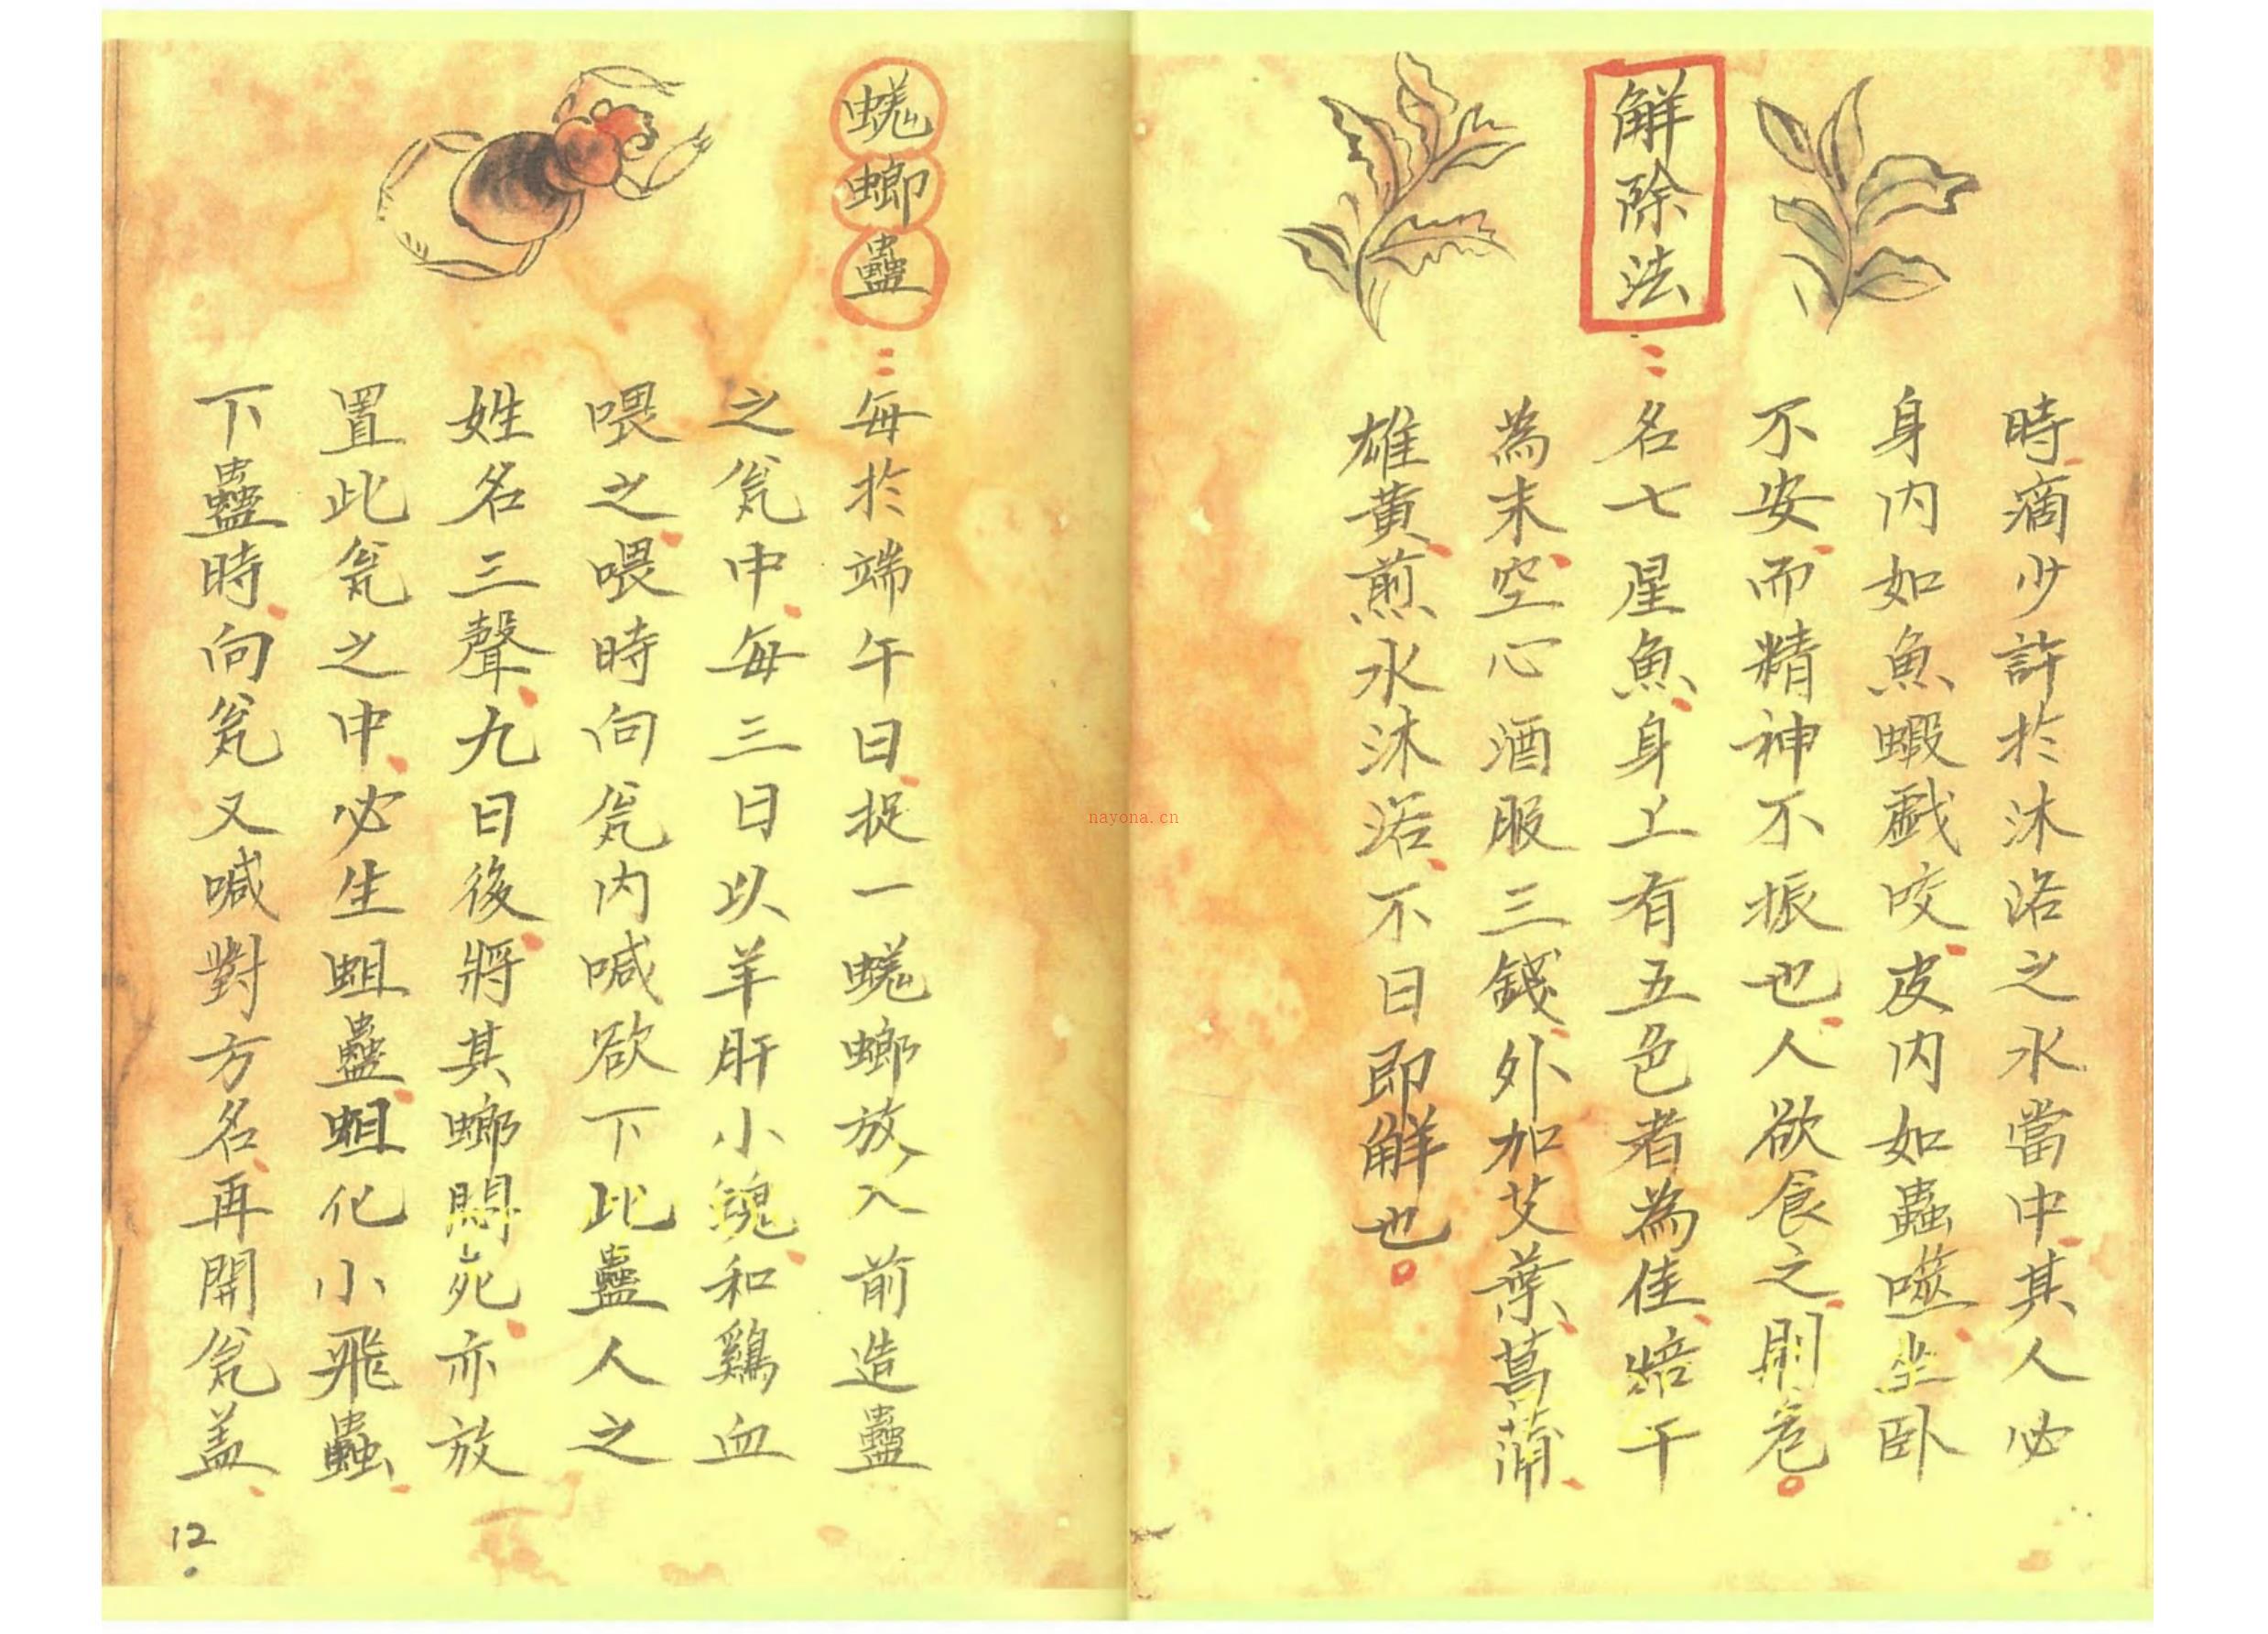 時滴少許於沐浴之水當中其人必
身内如魚蝦戲咬皮内如蟲噬坐卧
不安而精神不振也人欲食之則危
解除法
名七星魚身上有五色者為佳焙干
為末空心酒服三錢外加艾葉菖蒲
雄黄煎水沐浴不日即解也
蜣螂蠱
每於端午日捉一蜣螂放入前造蠱
之瓮中每三日以羊肝小塊和鷄血
喂之喂時向瓮内喊欲下此蠱人之
姓名三聲九日後將其螂悶死亦放
置此瓮之中必生蛆蠱蛆化小飛蟲
下蠱時向瓮又喊對方名再開瓮盖
12
nayona.cn